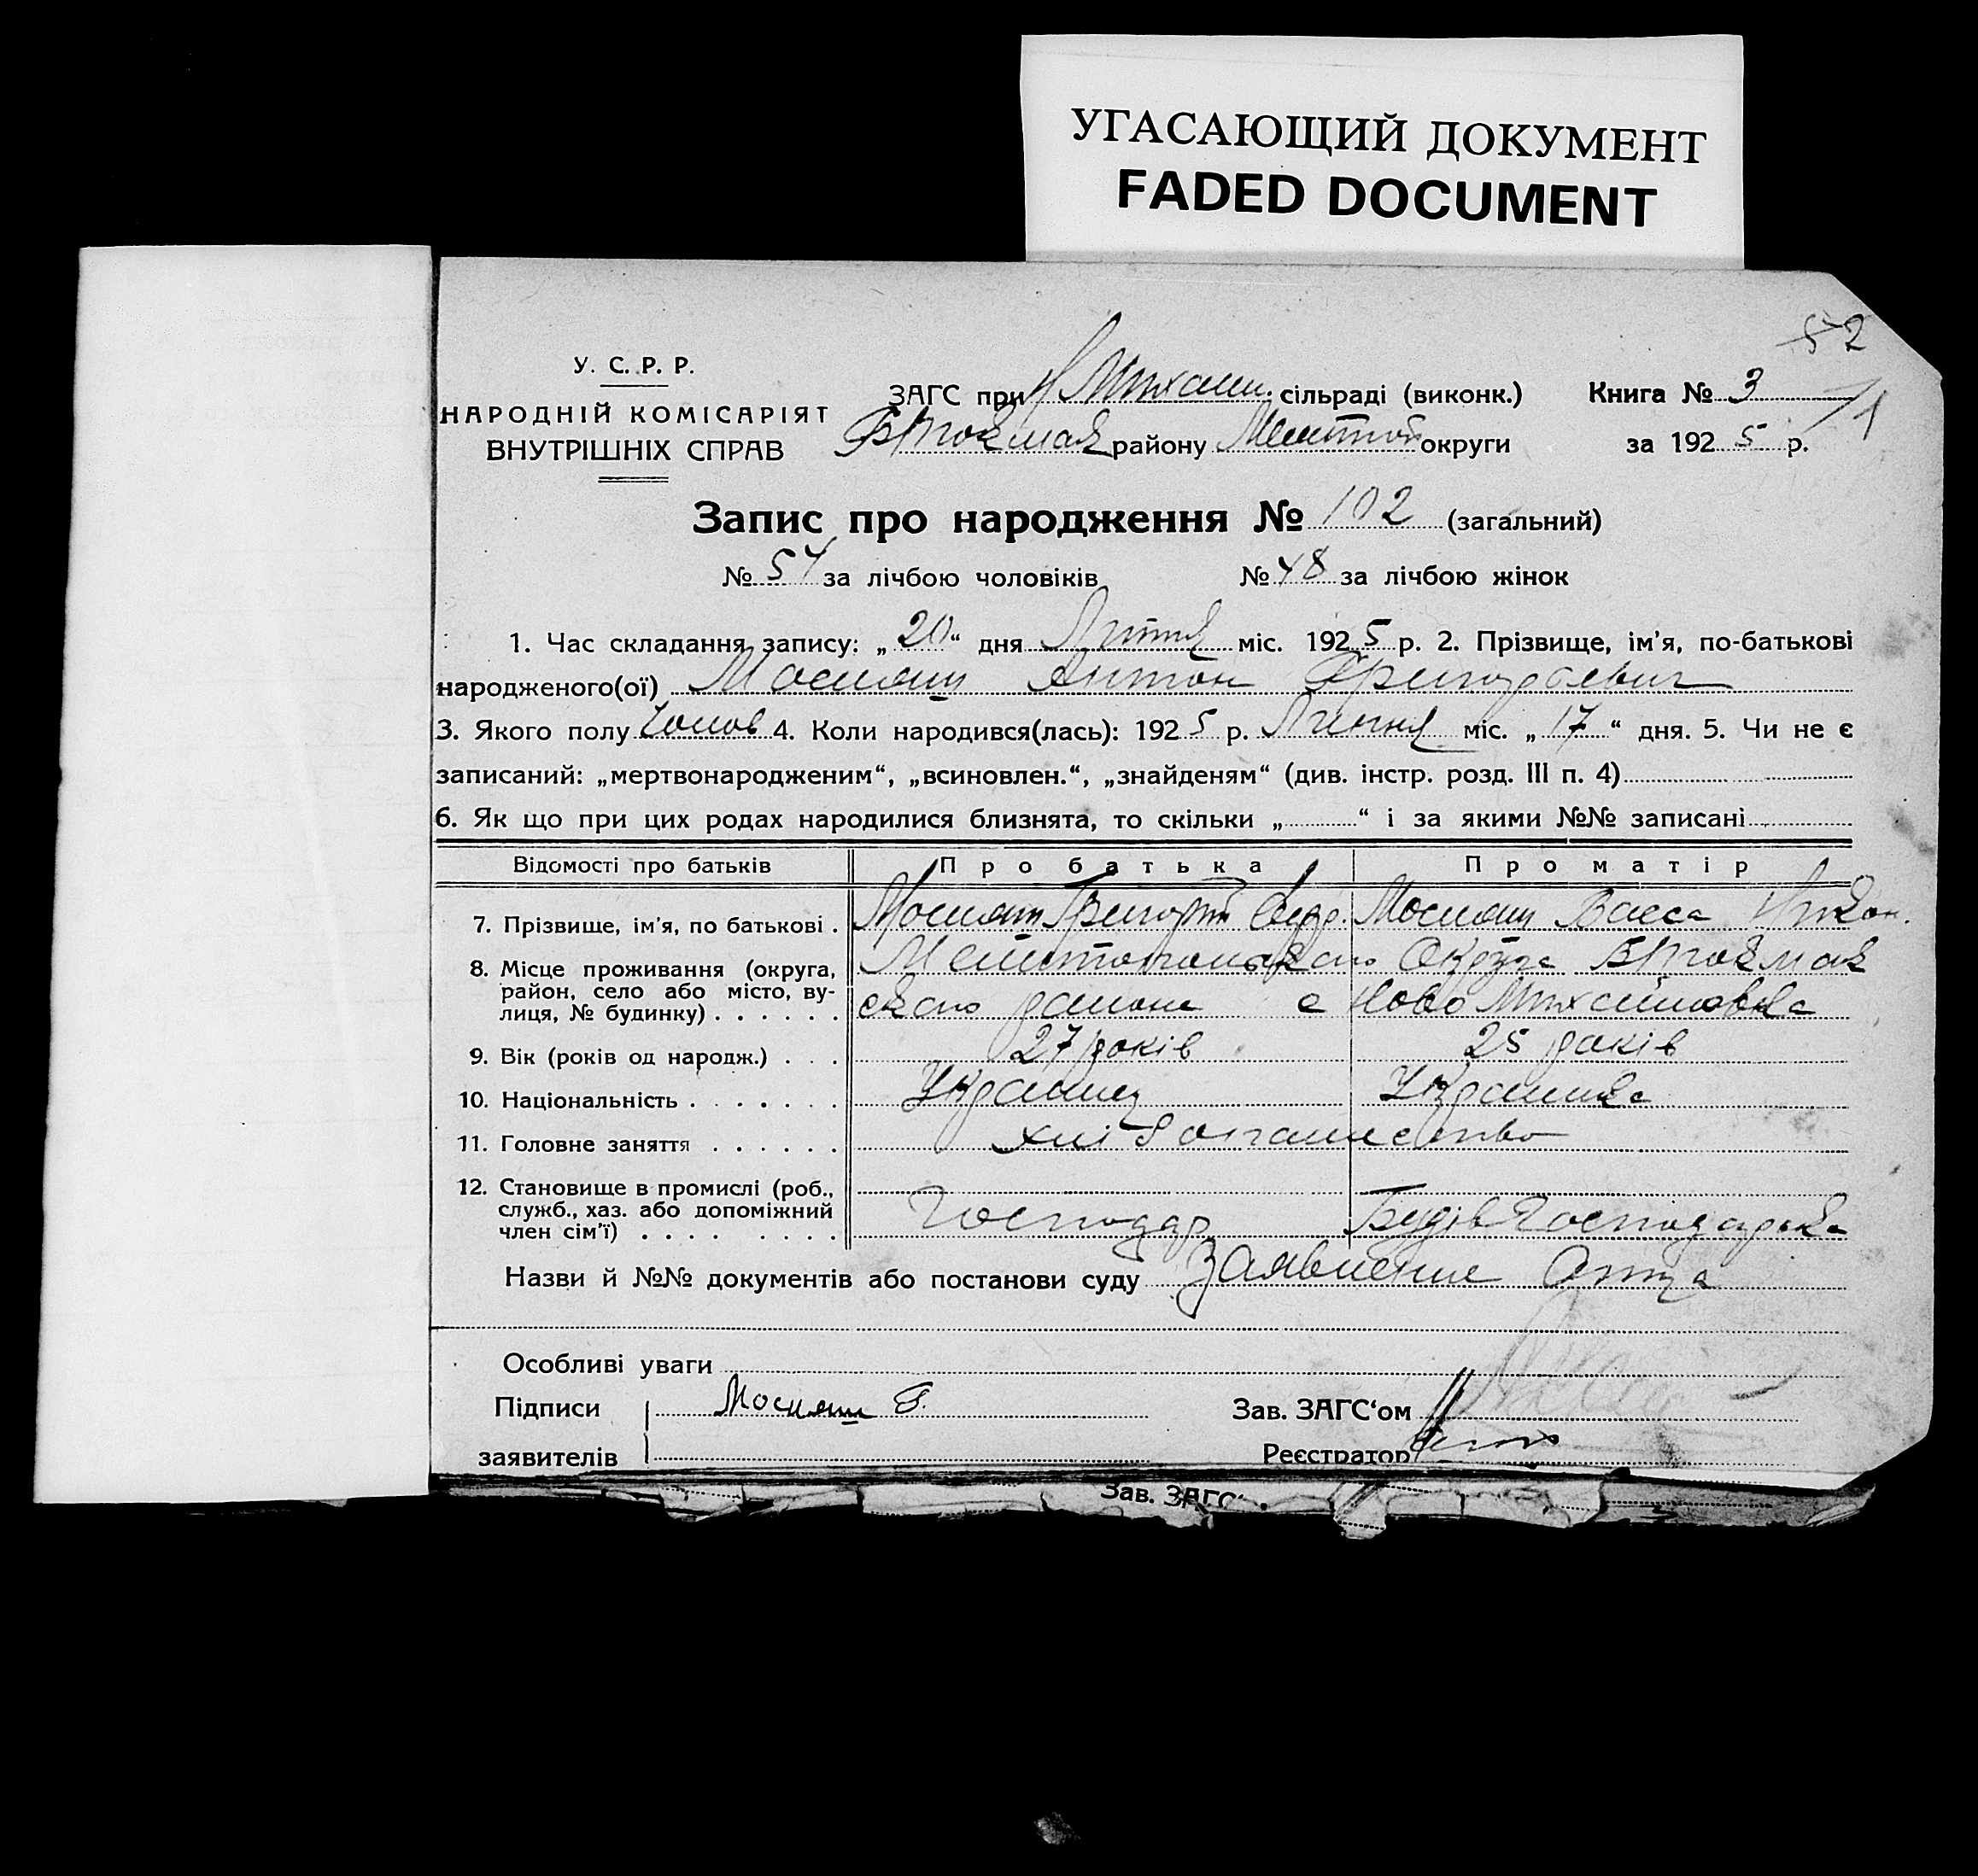 УГАСАЮЩИЙ ДОКУМЕНТ
FADED DOCUMENT
52
У. С. Р. Р.
НАРОДНІЙ КОМІСАРІЯТ
ВНУТРІШНІХ СПРАВ
ЗАГС при Н Михайл. сільраді (виконк.) Книга № 3
району Мелитоп округи за 1925 р.
Запис про народження № 102 (загальний)
№ 54 за лічбою чоловіків № 48 за лічбою жінок
1. Час складання запису: „20“ дня Липня міс. 1925 р. 2. Прізвище, ім'я, по-батькові
народженого(ої) Антон Григорьевич
3. Якого полу Чолов 4. Коли народився(лась): 1925 р. Липня міс. „17“ дня. 5. Чи не є
записаний: „мертвонародженим“, „всиновлен.“, „знайденям“ (див. інстр. розд. III п. 4)
6. Як що при цих родах народилися близнята, то скільки „ “ і за якими №№ записані
Відомості про батьків Про батька Про матір
7. Прізвище, ім'я, по батькові . Григорій Васса Никон.
8. Місце проживання (округа, Мелитопольскаго Округа
район, село або місто, ву-
лиця, № будинку) . . . . . . скаго района с Ново Михайловка
9. Вік (років од народж.) . . . 27 років 25 років
10. Національність . . . . . . . Украинец Украинка
11. Головне заняття . . . . . . хліборчество
12. Становище в промислі (роб.,
служб., хаз. або допоміжний
член сім'ї) . . . . . . . . Господар Господарька
Назви й №№ документів або постанови суду Заявление Отца
Особливі уваги
Підписи Г. Зав. ЗАГС'ом
заявителів Реєстратор
Зав. ЗАГС'